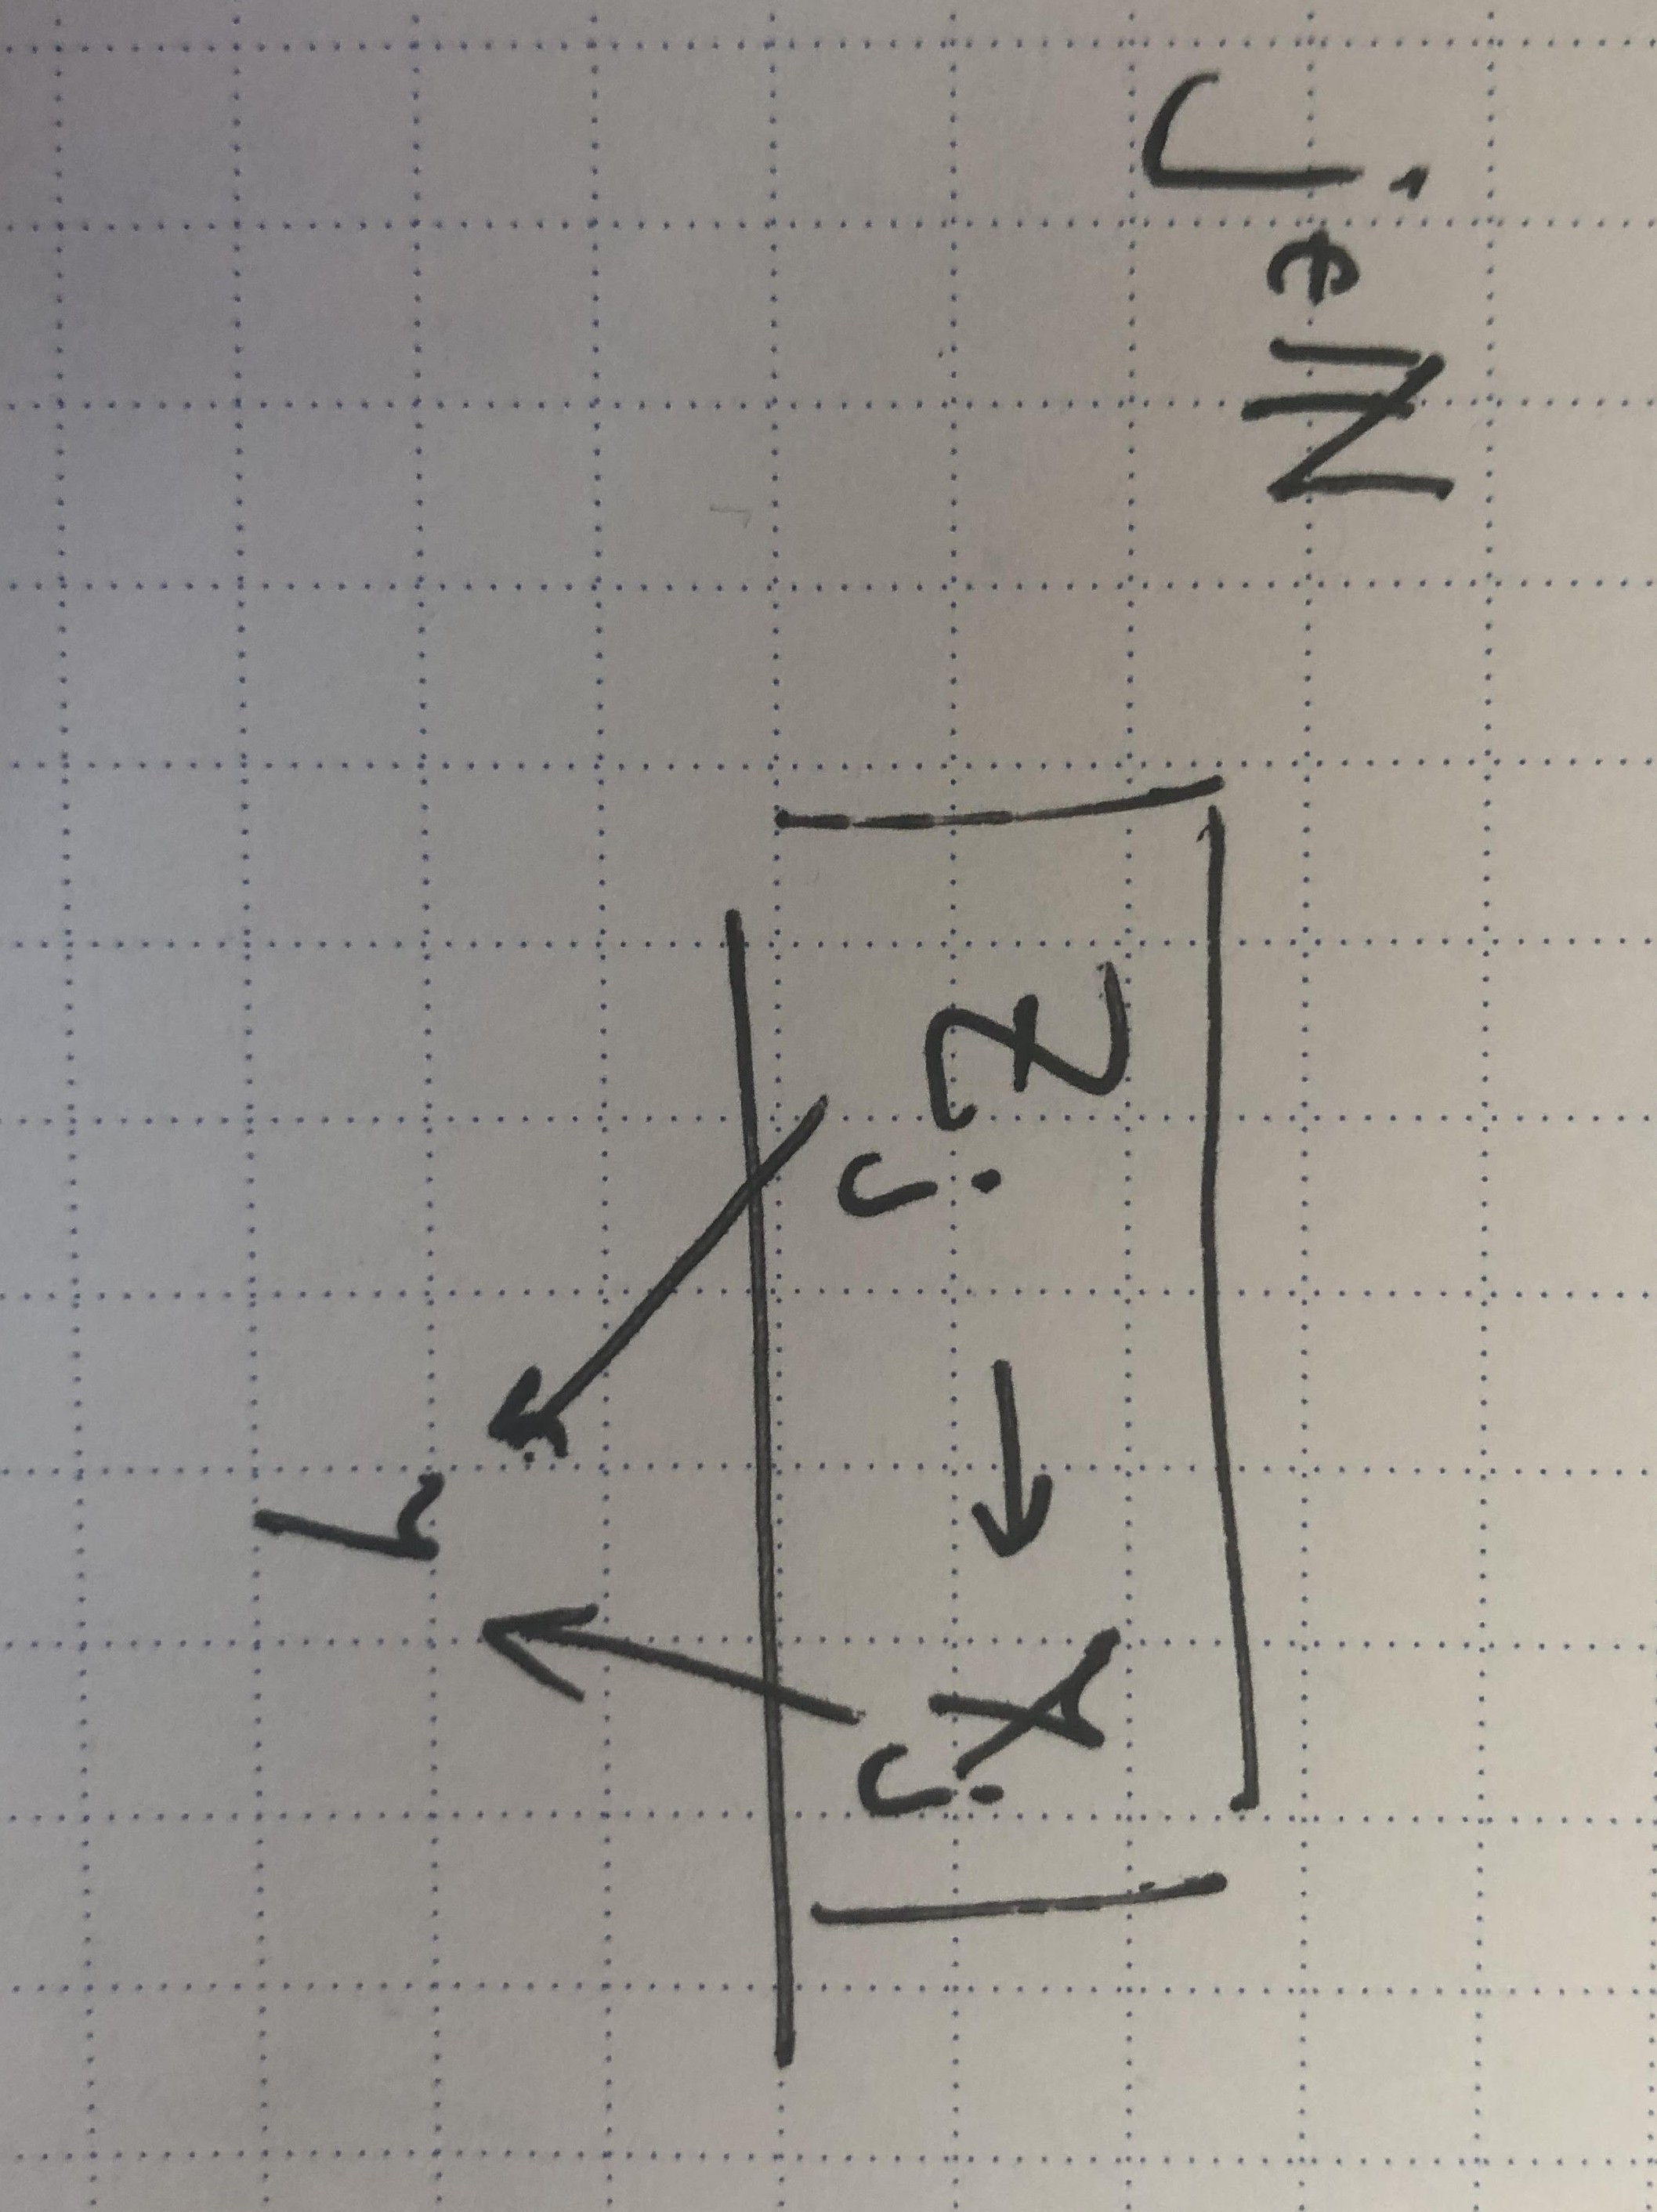 j∈ℕ
Z_j → X_j
Y